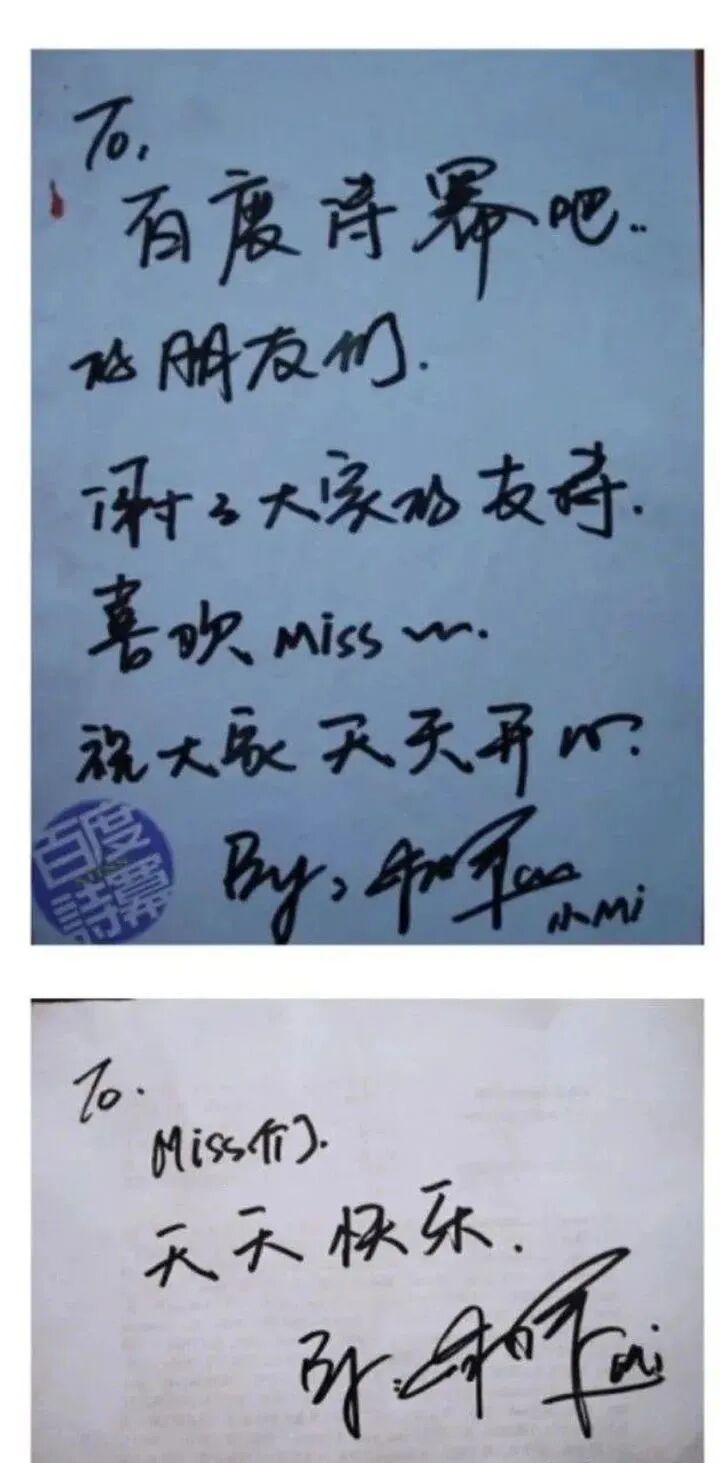 To.
百度诗幂吧..
的朋友们.
谢谢大家的支持.
喜欢 Miss
祝大家天天开心.
By:
小Mi
百度
To.
Miss们.
天天快乐.
By: